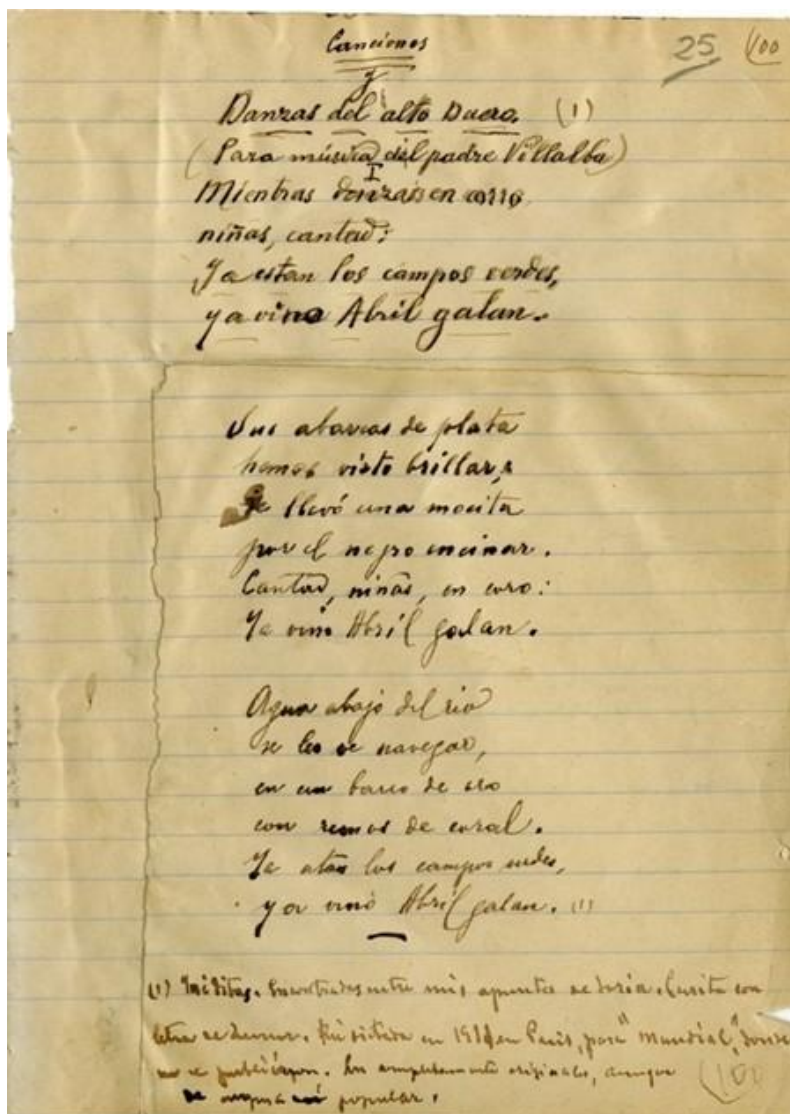 Canciones
25 100
y
Danzas del alto Duero. (1)
(Para música del padre Villalba)
I
Mientras danzais en corro
niñas, cantad:
Ya estan los campos verdes,
ya vino Abril galan.
Sus abarcas de plata
hemos visto brillar,
Se llevó una mocita
por el negro encinar.
Cantad, niñas, en coro:
Ya vino Abril galan.
Agua abajo del rio
se les ve navegar,
en un barco de oro
con remos de coral.
Ya estan los campos verdes,
ya vino Abril galan. (1)
(1) Inéditas. Encontradas entre mis apuntes de Soria. Escrita con
letra de . dictada en 1911 en Paris, para "Mundial", donde
no se publicaron. Son completamente originales, aunque
de popular.
100